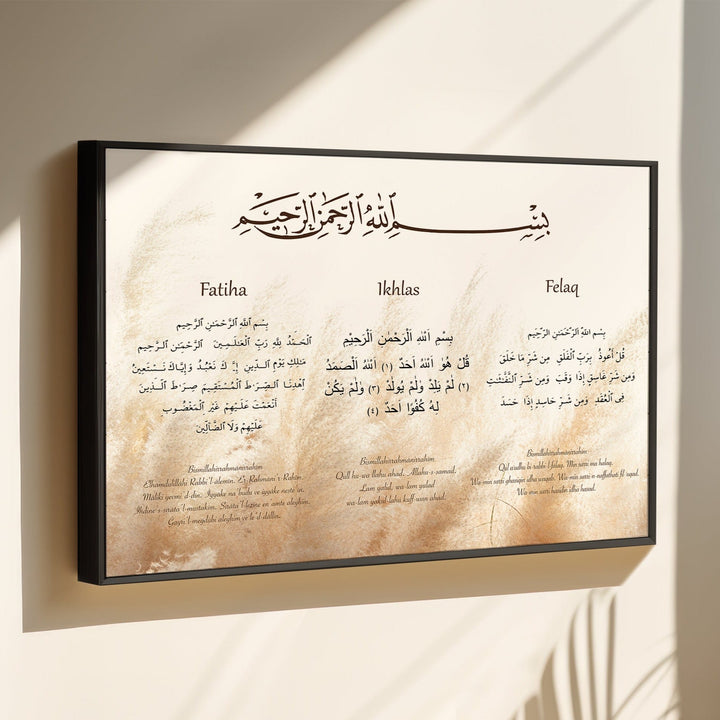 بِسْمِ ٱللَّٰهِ ٱلرَّحْمَٰنِ ٱلرَّحِيمِ
Fatiha
بِسْمِ اللَّهِ الرَّحْمَـٰنِ الرَّحِيمِ
الْحَمْدُ لِلَّهِ رَبِّ الْعَـٰلَمِينَ الرَّحْمَـٰنِ الرَّحِيمِ
مَـٰلِكِ يَوْمِ الدِّينِ إِيَّاكَ نَعْبُدُ وَإِيَّاكَ نَسْتَعِينُ
اهْدِنَا الصِّرَٰطَ الْمُسْتَقِيمَ صِرَٰطَ الَّذِينَ
أَنْعَمْتَ عَلَيْهِمْ غَيْرِ الْمَغْضُوبِ
عَلَيْهِمْ وَلَا الضَّالِّينَ
Bismillahirrahmanirrahim
Elhamdülillâhi Rabbi'l-alemin. Er-Rahmâni'r-Rahim
Mâliki yevmi'd-din. İyyake na'budu ve iyyake neste'in.
İhdine's-srata'l-mustakim. Srata'l-lezine en'amte aleyhim.
Gayri'l-megdubi aleyhim ve le'd-dâllin.
Ikhlas
بِسْمِ اللَّهِ الرَّحْمَٰنِ الرَّحِيْمِ
قُلْ هُوَ اللَّهُ أَحَدٌ (١) اللَّهُ الصَّمَدُ
(٢) لَمْ يَلِدْ وَلَمْ يُولَدْ (٣) وَلَمْ يَكُنْ
لَهُ كُفُوًا أَحَدٌ (٤)
Bismillahirrahmanirrahim
Qull hu-wa llahu ahad. Allahu-s-samad.
Lam yalid, wa-lam yulad
wa-lam yakul-lahu kuff-wan ahad.
Felaq
بِسْمِ اللهِ الرَّحْمَـٰنِ الرَّحِيمِ
قُلْ أَعُوذُ بِرَبِّ الْفَلَقِ مِن شَرِّ مَا خَلَقَ
وَمِن شَرِّ غَاسِقٍ إِذَا وَقَبَ وَمِن شَرِّ النَّفَّـٰثَـٰتِ
فِى الْعُقَدِ وَمِن شَرِّ حَاسِدٍ إِذَا حَسَدَ
Bismillahirrahmanirrahim
Qul a'udhu bi rabbi l-falaq. Min sarri ma halaq.